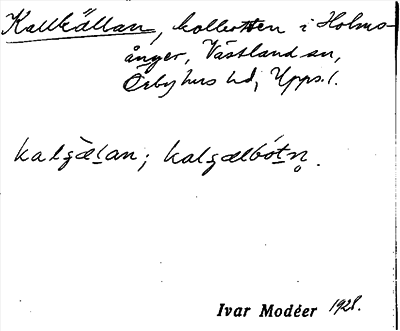 Kallkällan, kolbotten i Holms-
ånger, Västland sn,
Örbyhus hd, Upps. l.
kalʒæ̀lan; kalʒælbótn̥.
Ivar Modéer 1928.